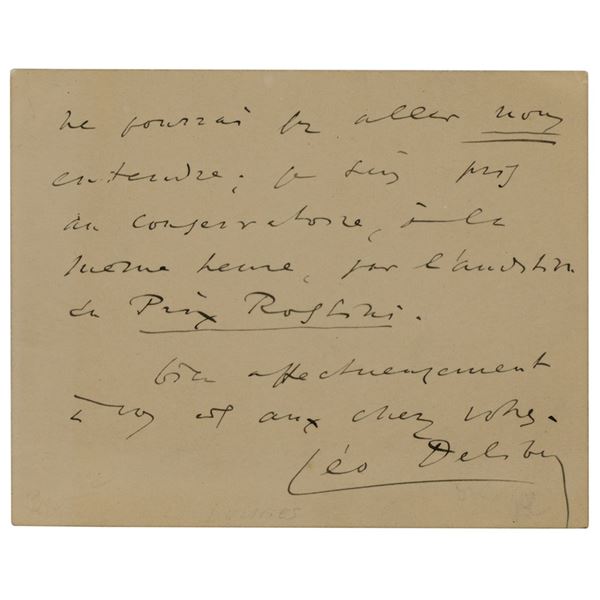 ne pourrai pas aller nous
entendre; je suis pris
au conservatoire, à la
même heure, par l'audition
du Prix Rossini.
bien affectueusement
à vous et aux chers vôtres.
Léo Delibes